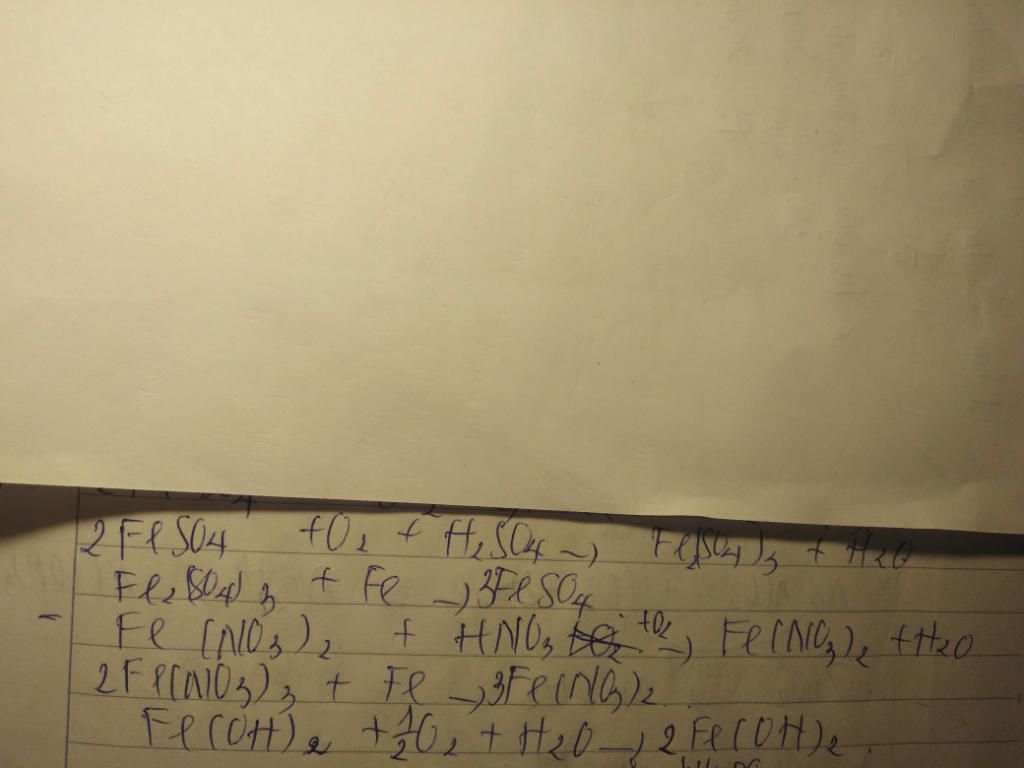 2FeSO4 + O2 + H2SO4 → Fe2(SO4)3 + H2O
Fe2(SO4)3 + Fe → 3FeSO4
- Fe(NO3)2 + HNO3 +O2 → Fe(NO3)2 + H2O
2Fe(NO3)3 + Fe → 3Fe(NO3)2.
Fe(OH)2 + 1/2O2 + H2O → 2Fe(OH)2.